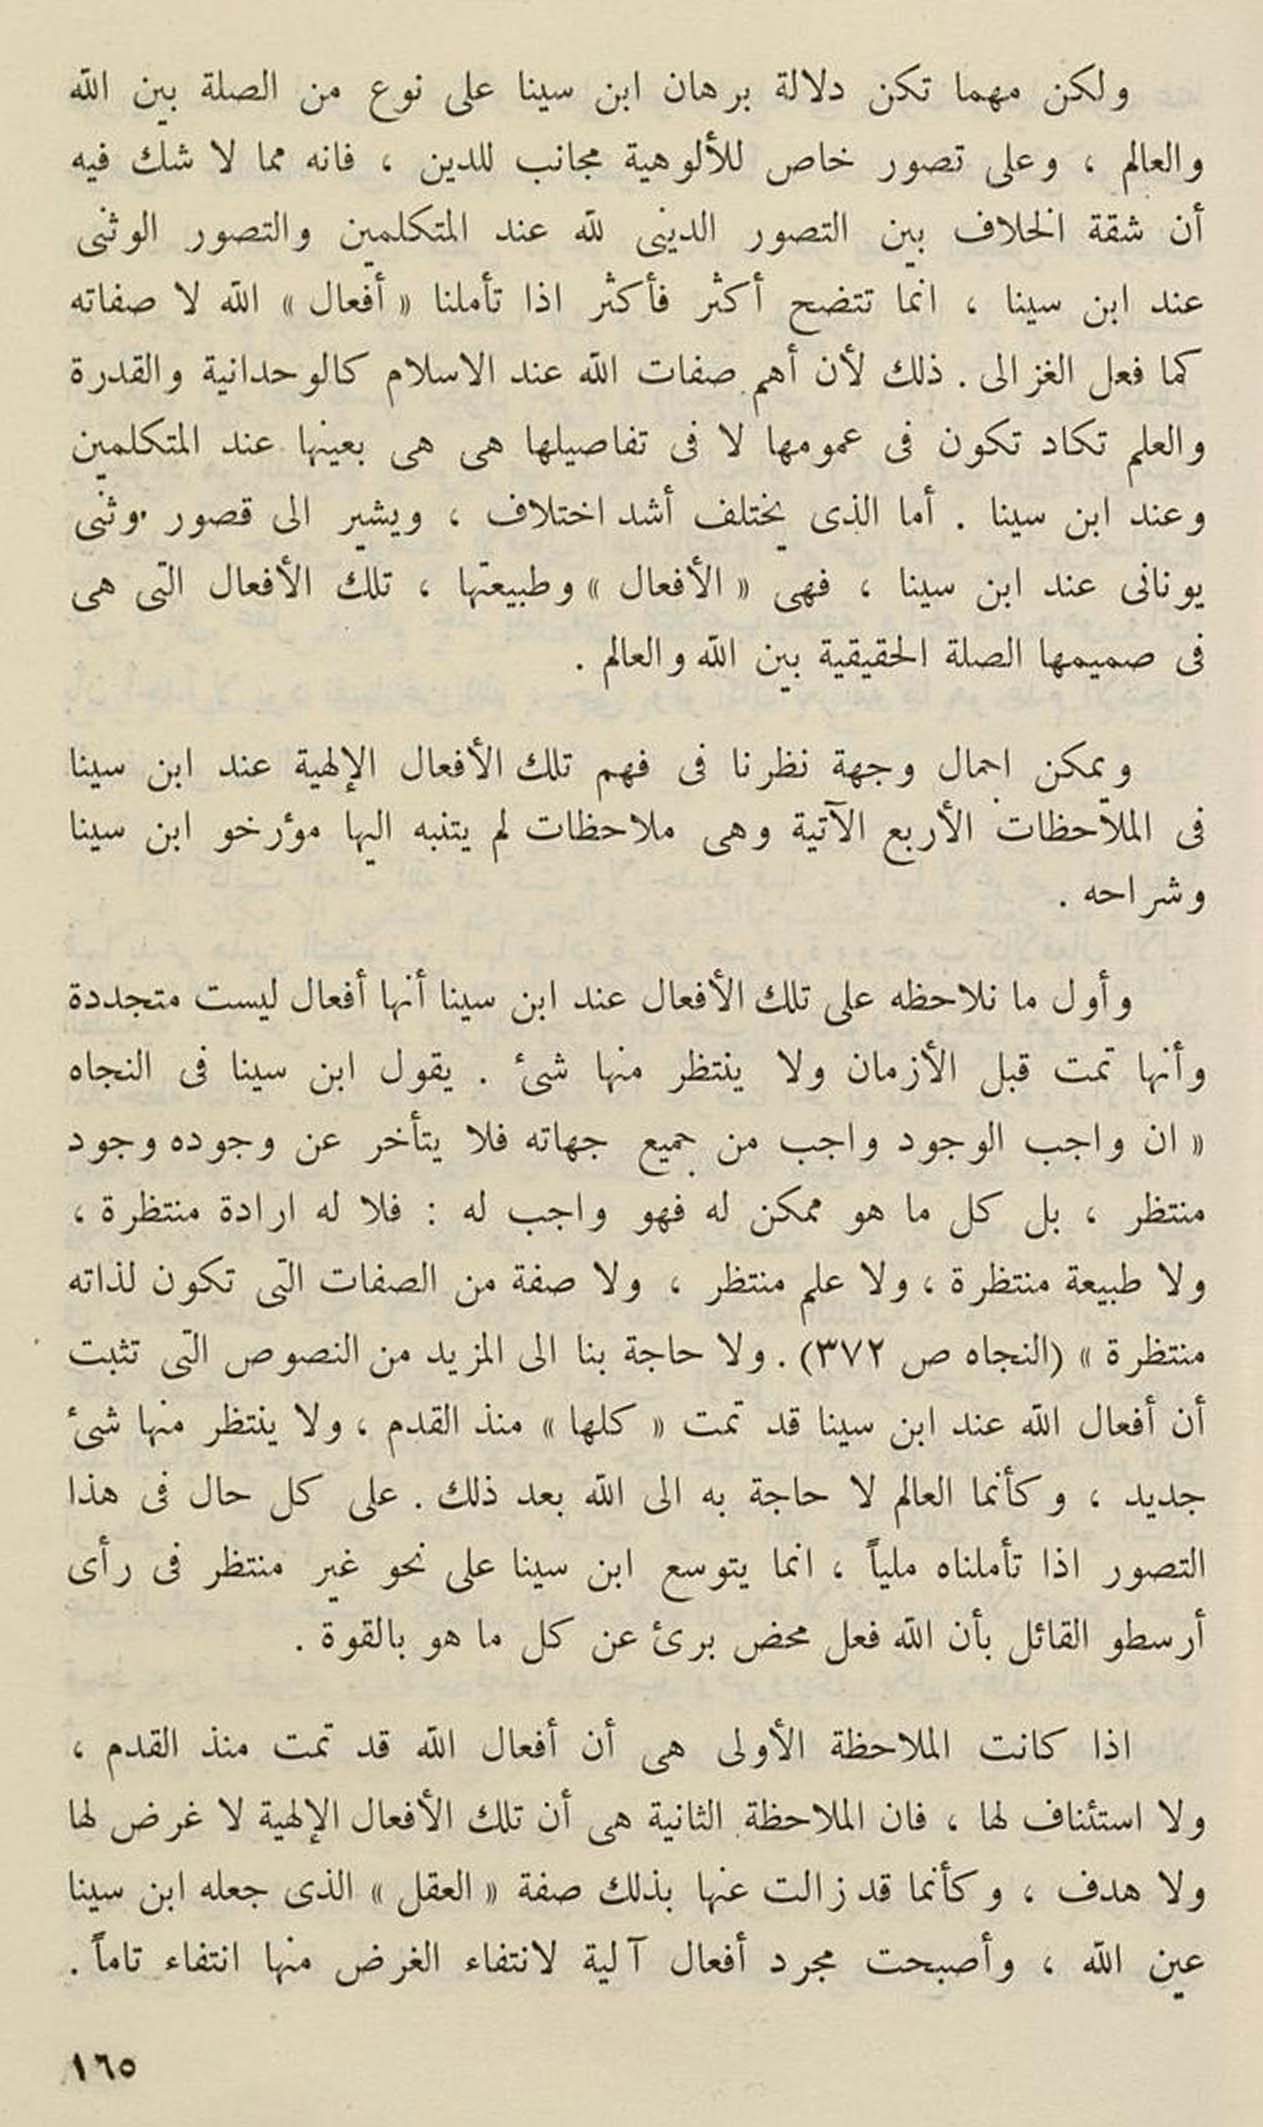 ولكن مهما تكن دلالة برهان ابن سينا على نوع من الصلة بين الله
والعالم ، وعلى تصور خاص للألوهية مجانب للدين ، فانه مما لا شك فيه
أن شقة الخلاف بين التصور الدينى لله عند المتكلمين والتصور الوثنى
عند ابن سينا ، انما تتضح أكثر فأكثر اذا تأملنا « أفعال » الله لا صفاته
كما فعل الغزالى . ذلك لأن أهم صفات الله عند الاسلام كالوحدانية والقدرة
والعلم تكاد تكون فى عمومها لا فى تفاصيلها هى هى بعينها عند المتكلمين
وعند ابن سينا . أما الذى يختلف أشد اختلاف ، ويشير الى قصور وثنى
يونانى عند ابن سينا ، فهى « الأفعال » وطبيعتها ، تلك الأفعال التى هى
فى صميمها الصلة الحقيقية بين الله والعالم .
ويمكن اجمال وجهة نظرنا فى فهم تلك الأفعال الإلهية عند ابن سينا
فى الملاحظات الأربع الآتية وهى ملاحظات لم يتنبه اليها مؤرخو ابن سينا
وشراحه .
وأول ما نلاحظه على تلك الأفعال عند ابن سينا أنها أفعال ليست متجددة
وأنها تمت قبل الأزمان ولا ينتظر منها شئ . يقول ابن سينا فى النجاه
« ان واجب الوجود واجب من جميع جهاته فلا يتأخر عن وجوده وجود
منتظر ، بل كل ما هو ممكن له فهو واجب له : فلا له ارادة منتظرة ،
ولا طبيعة منتظرة ، ولا علم منتظر ، ولا صفة من الصفات التى تكون لذاته
منتظرة » (النجاه ص ٣٧٢) . ولا حاجة بنا الى المزيد من النصوص التى تثبت
أن أفعال الله عند ابن سينا قد تمت « كلها » منذ القدم ، ولا ينتظر منها شئ
جديد ، وكأنما العالم لا حاجة به الى الله بعد ذلك . على كل حال فى هذا
التصور اذا تأملناه ملياً ، انما يتوسع ابن سينا على نحو غير منتظر فى رأى
أرسطو القائل بأن الله فعل محض برئ عن كل ما هو بالقوة .
اذا كانت الملاحظة الأولى هى أن أفعال الله قد تمت منذ القدم ،
ولا استئناف لها ، فان الملاحظة الثانية هى أن تلك الأفعال الإلهية لا غرض لها
ولا هدف ، وكأنما قد زالت عنها بذلك صفة « العقل » الذى جعله ابن سينا
عين الله ، وأصبحت مجرد أفعال آلية لانتفاء الغرض منها انتفاء تاماً .
١٦٥